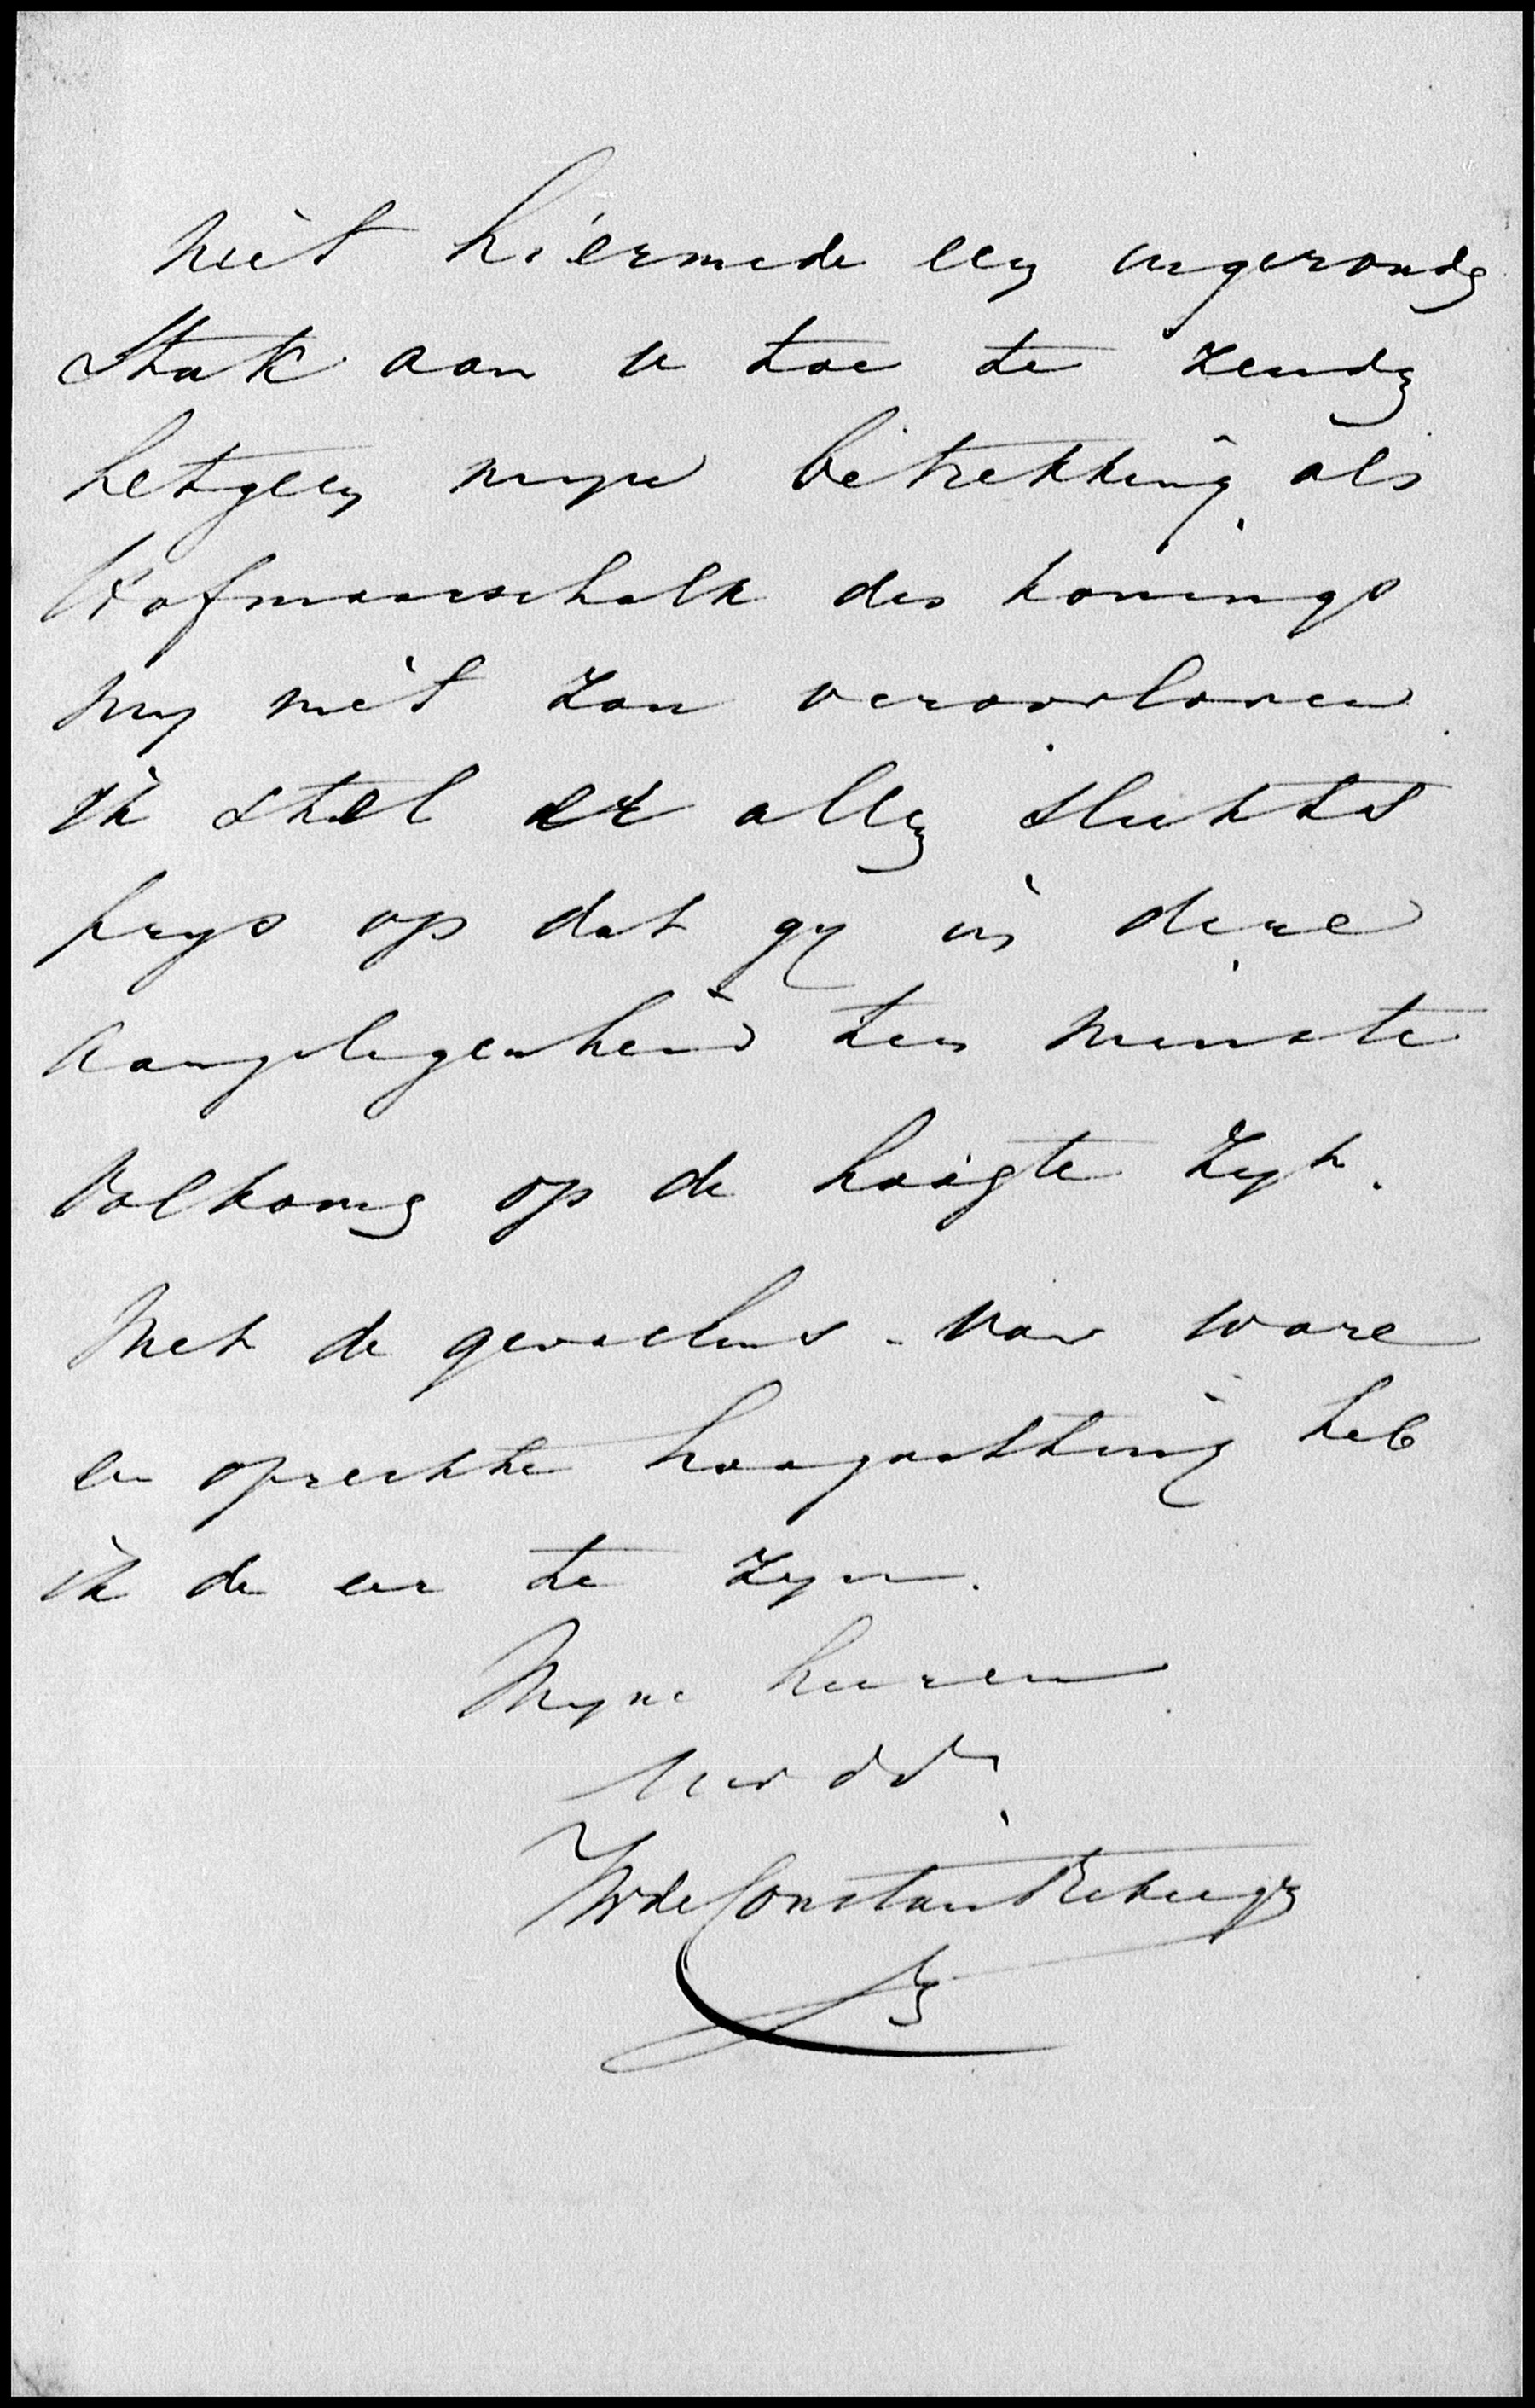 niet hiermede een ingezonden
Stuk aan u toe te zenden
hetgeen myne betrekking als
Hofmaarschalk des konings
my niet zou veroorloven
ik stel er alleen slechts
prys op dat gy in deze
aangelegenheid ten minste
Volkomen op de hoogte zyt.
Met de gevoelens van ware
en oprechte hoogachting heb
ik de eer te zyn.
Myne heeren
de Constant Rebecque